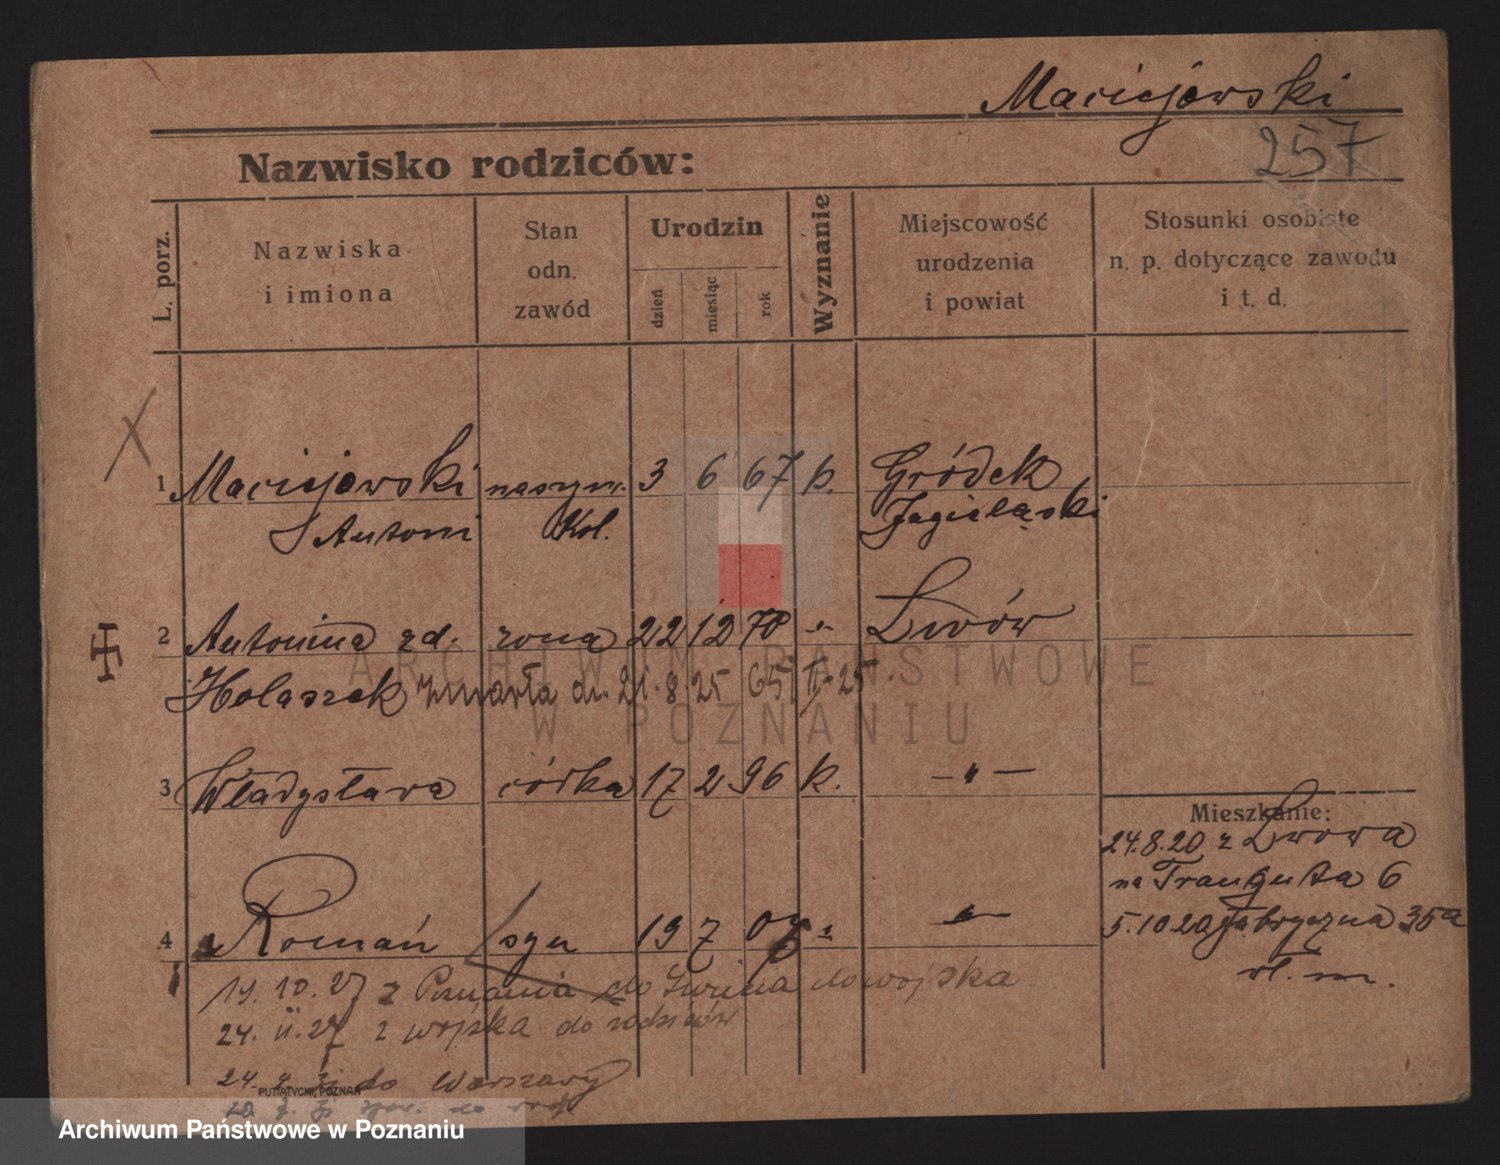 Maciejowski
257
Nazwisko rodziców:
L. porz.
Nazwiska
i imiona
Stan
odn.
zawód
Urodzin
dzień
miesiąc
rok
Wyznanie
Miejscowość
urodzenia
i powiat
Stosunki osobiste
n. p. dotyczące zawodu
i t. d.
1 Maciejowski maszyn. 3 6 67 k. Gródek
Antoni Kol. Jagieląski
2 Antonina zd. żona 22 12 70 -"- Lwów
Holaszek zmarła dn. 21. 8 25
ARCHIWUM PAŃSTWOWE
W POZNANIU
3 Władysława córka 17 2 96 k. -"-
Mieszkanie:
24.8.20 z Lwowa
na Traugutta 6
5.10.20 Fabryczna 35a
wł. m.
4 Roman syn 19 7 07 " -"-
19. 10. 27 z Poznania do Lwowa do wojska
24. 11. 27 z wojska do rodziców
24. do Warszawy
PUTIATYCKI, POZNAŃ
Archiwum Państwowe w Poznaniu